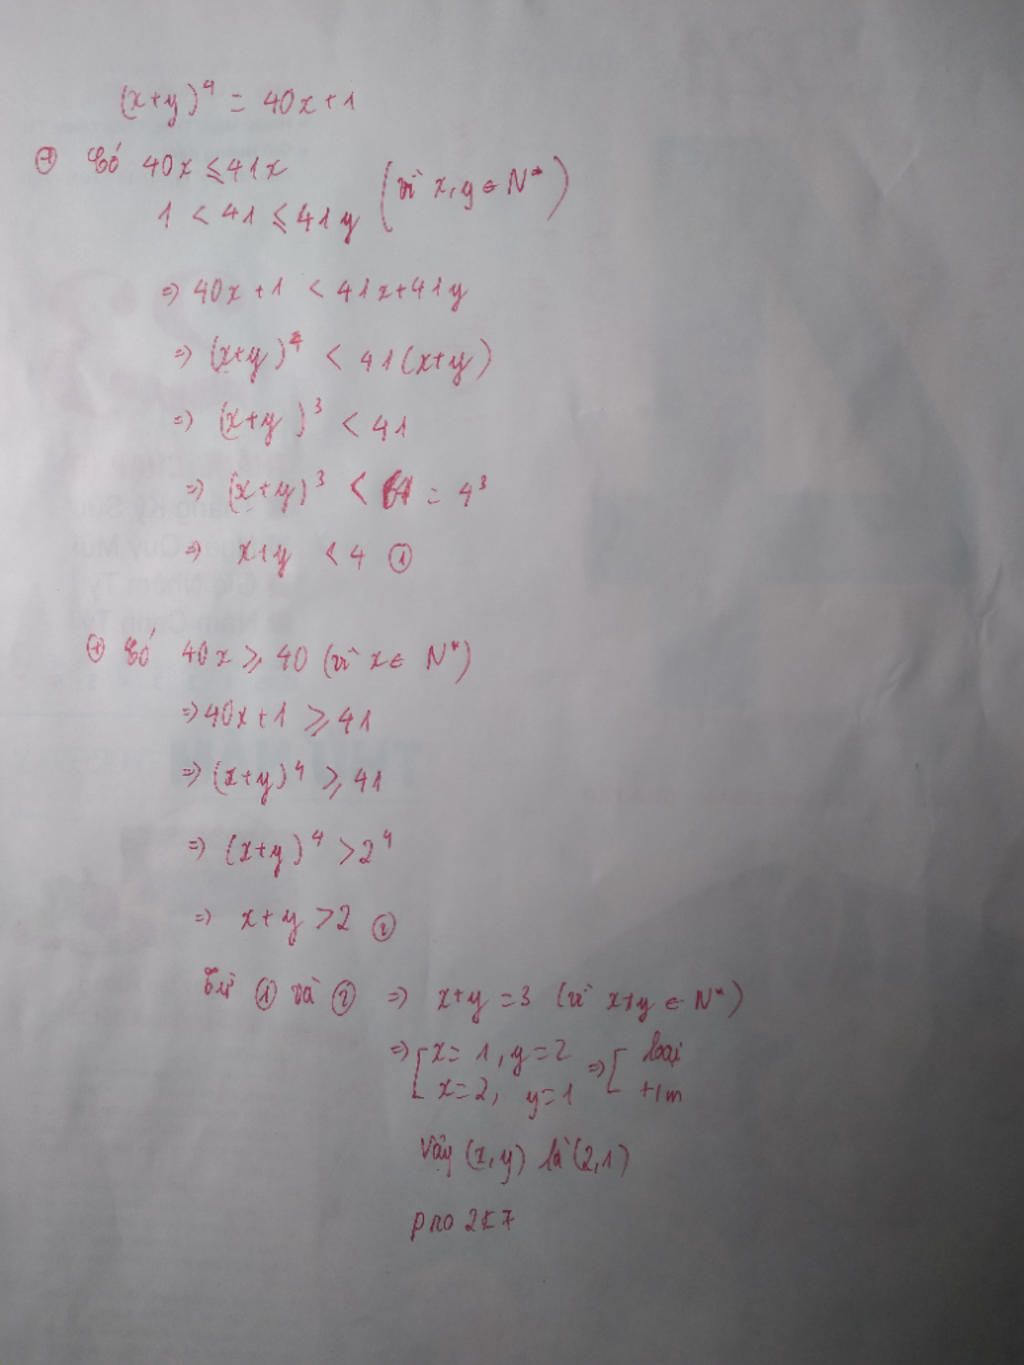 (x+y)⁴ = 40x+1
⊕ Có 40x ≤ 41x
1 < 41 ≤ 41y (vì x,y ∈ N*)
⇒ 40x+1 < 41x+41y
⇒ (x+y)⁴ < 41(x+y)
⇒ (x+y)³ < 41
⇒ (x+y)³ < 64 = 4³
⇒ x+y < 4 ①
⊕ Có 40x ≥ 40 (vì x ∈ N*)
⇒ 40x+1 ≥ 41
⇒ (x+y)⁴ ≥ 41
⇒ (x+y)⁴ > 2⁴
⇒ x+y > 2 ②
Từ ① và ② ⇒ x+y = 3 (vì x+y ∈ N*)
⇒ [ x= 1, y=2 ⇒ [ loại
x=2, y=1 t/m
Vậy (x,y) là (2,1)
pro 2k7